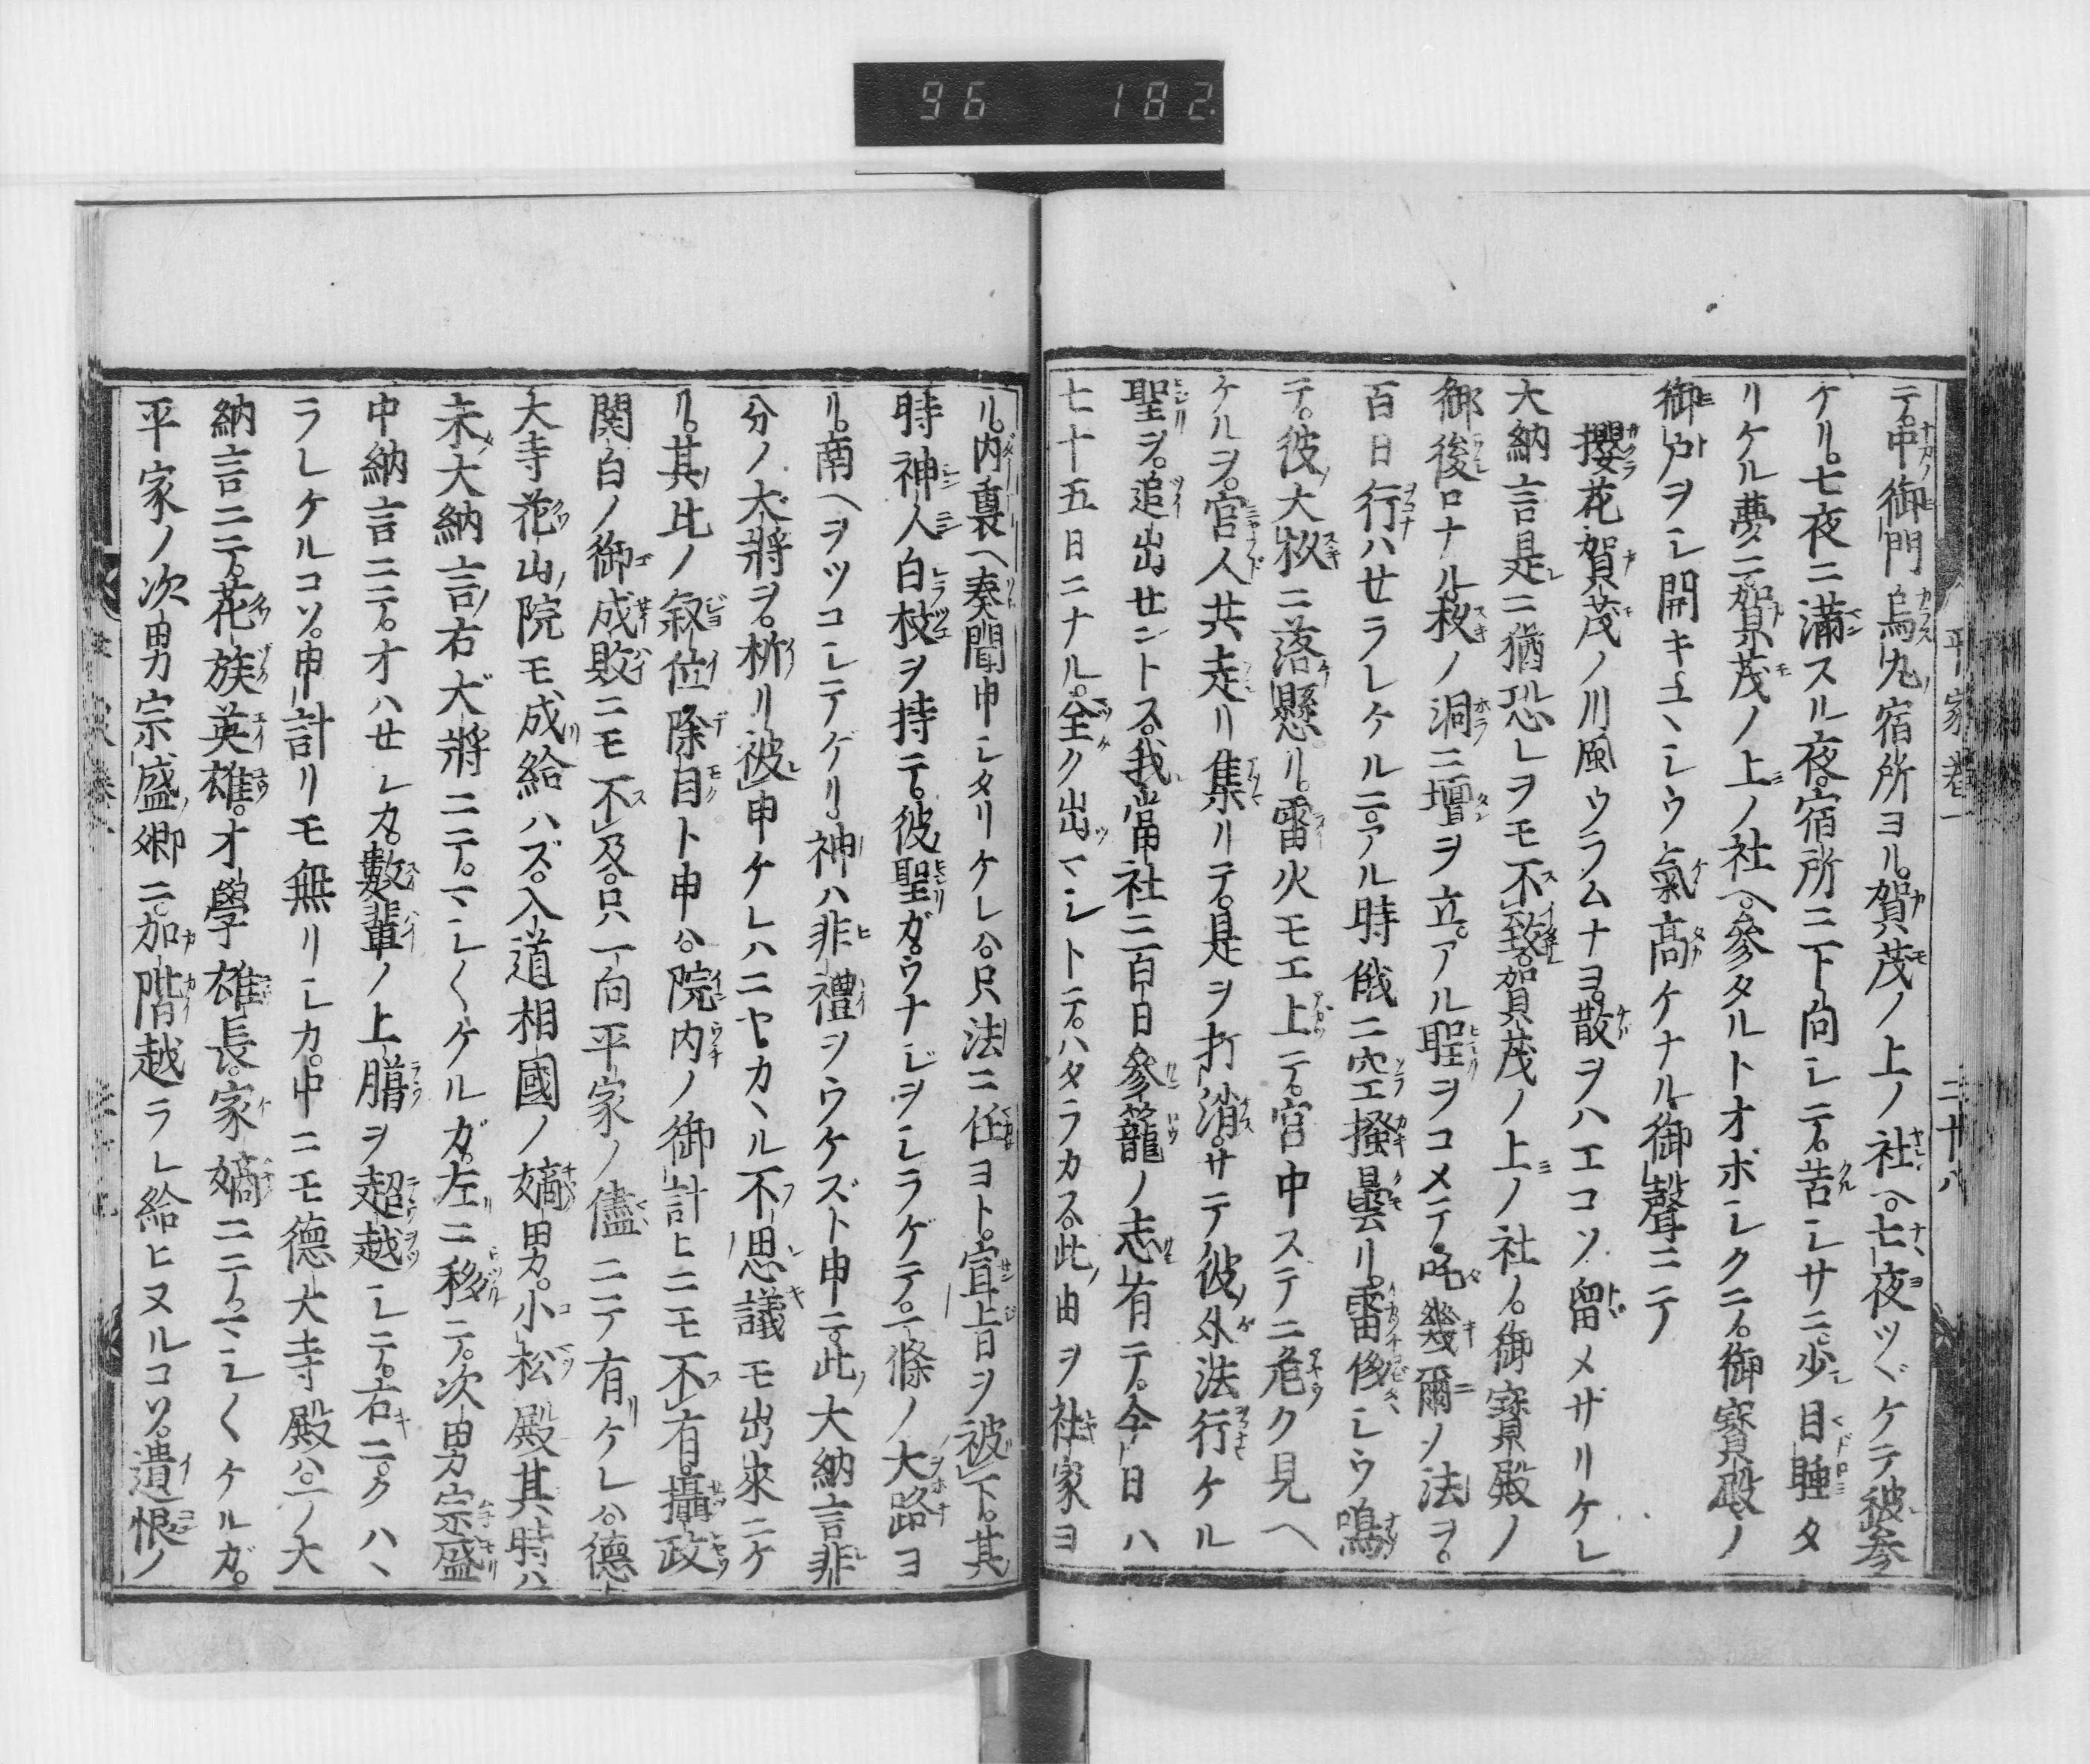 96 182
平家巻一
二十八
テ。中御門烏丸ノ宿所ヨル。賀茂ノ上ノ社ヘ。七夜ツヾケテ被参
ケリ。七夜ニ満スル夜。宿所ニ下向シテ。苦シサニ。少目睡タ
リケル夢ニ。賀茂ノ上ノ社ヘ。參タルトオボシクニ。御寳殿ノ
御戸ヲシ開キユヽシウ氣高ケナル御聲ニテ
櫻花賀茂ノ川風ウラムナヨ。散ヲハエコソ留メザリケレ
大納言是ニ猶恐レヲモ不致。賀茂ノ上ノ社ノ。御寳殿ノ
御後ロナル杉ノ洞ニ壇ヲ立。アル聖ヲコメテ。吒幾爾ノ法ヲ。
百日行ハせラレケルニ。アル時俄ニ空搔曇リ。雷侈シウ鳴
テ。彼大杉ニ落懸リ。雷火モエ上テ。宮中ステニ危ク見ヘ
ケルヲ。宮人共走リ集リテ。是ヲ打消。サテ彼外法行ケル
聖ヲ。追出せントス。我當社ニ百日參籠ノ志有テ。今日ハ
七十五日ニナル。全ク出マシトテ。ハタラカス。此由ヲ社家ヨ
リ。内裏ヘ奏聞申シタリケレハ。只法ニ任ヨト。宣旨ヲ被下。其
時神人白杖ヲ持テ。彼聖ガ。ウナジヲシラゲテ。一條ノ大路ヨ
リ。南ヘヲツコシテゲリ。神ハ非禮ヲウケズト申ニ。此大納言非
分ノ大將ヲ。祈リ被申ケレハニヤ。カヽル不思議モ出來ニケ
リ。其比ノ叙位除目ト申ハ。院内ノ御計ヒニモ不有。攝政
関白ノ御成敗ニモ不及。只一向平家ノ儘ニテ有ケレハ。德
大寺花山ノ院モ成給ハズ。入道相國ノ嫡男。小松殿其時ハ
未大納言ノ右大將ニテ。マシ〱ケルガ。左ニ移テ。次男宗盛
中納言ニテ。オハせレカ。數輩ノ上臈ヲ超越シテ。右ニクハヽ
ラレケルコソ。申計リモ無リシカ。中ニモ德大寺殿ハ。一ノ大
納言ニテ。花族英雄。才學雄長。家嫡ニテ。マシ〱ケルガ。
平家ノ次男宗盛卿ニ。加階越ラレ給ヒヌルコソ。遺恨ノ